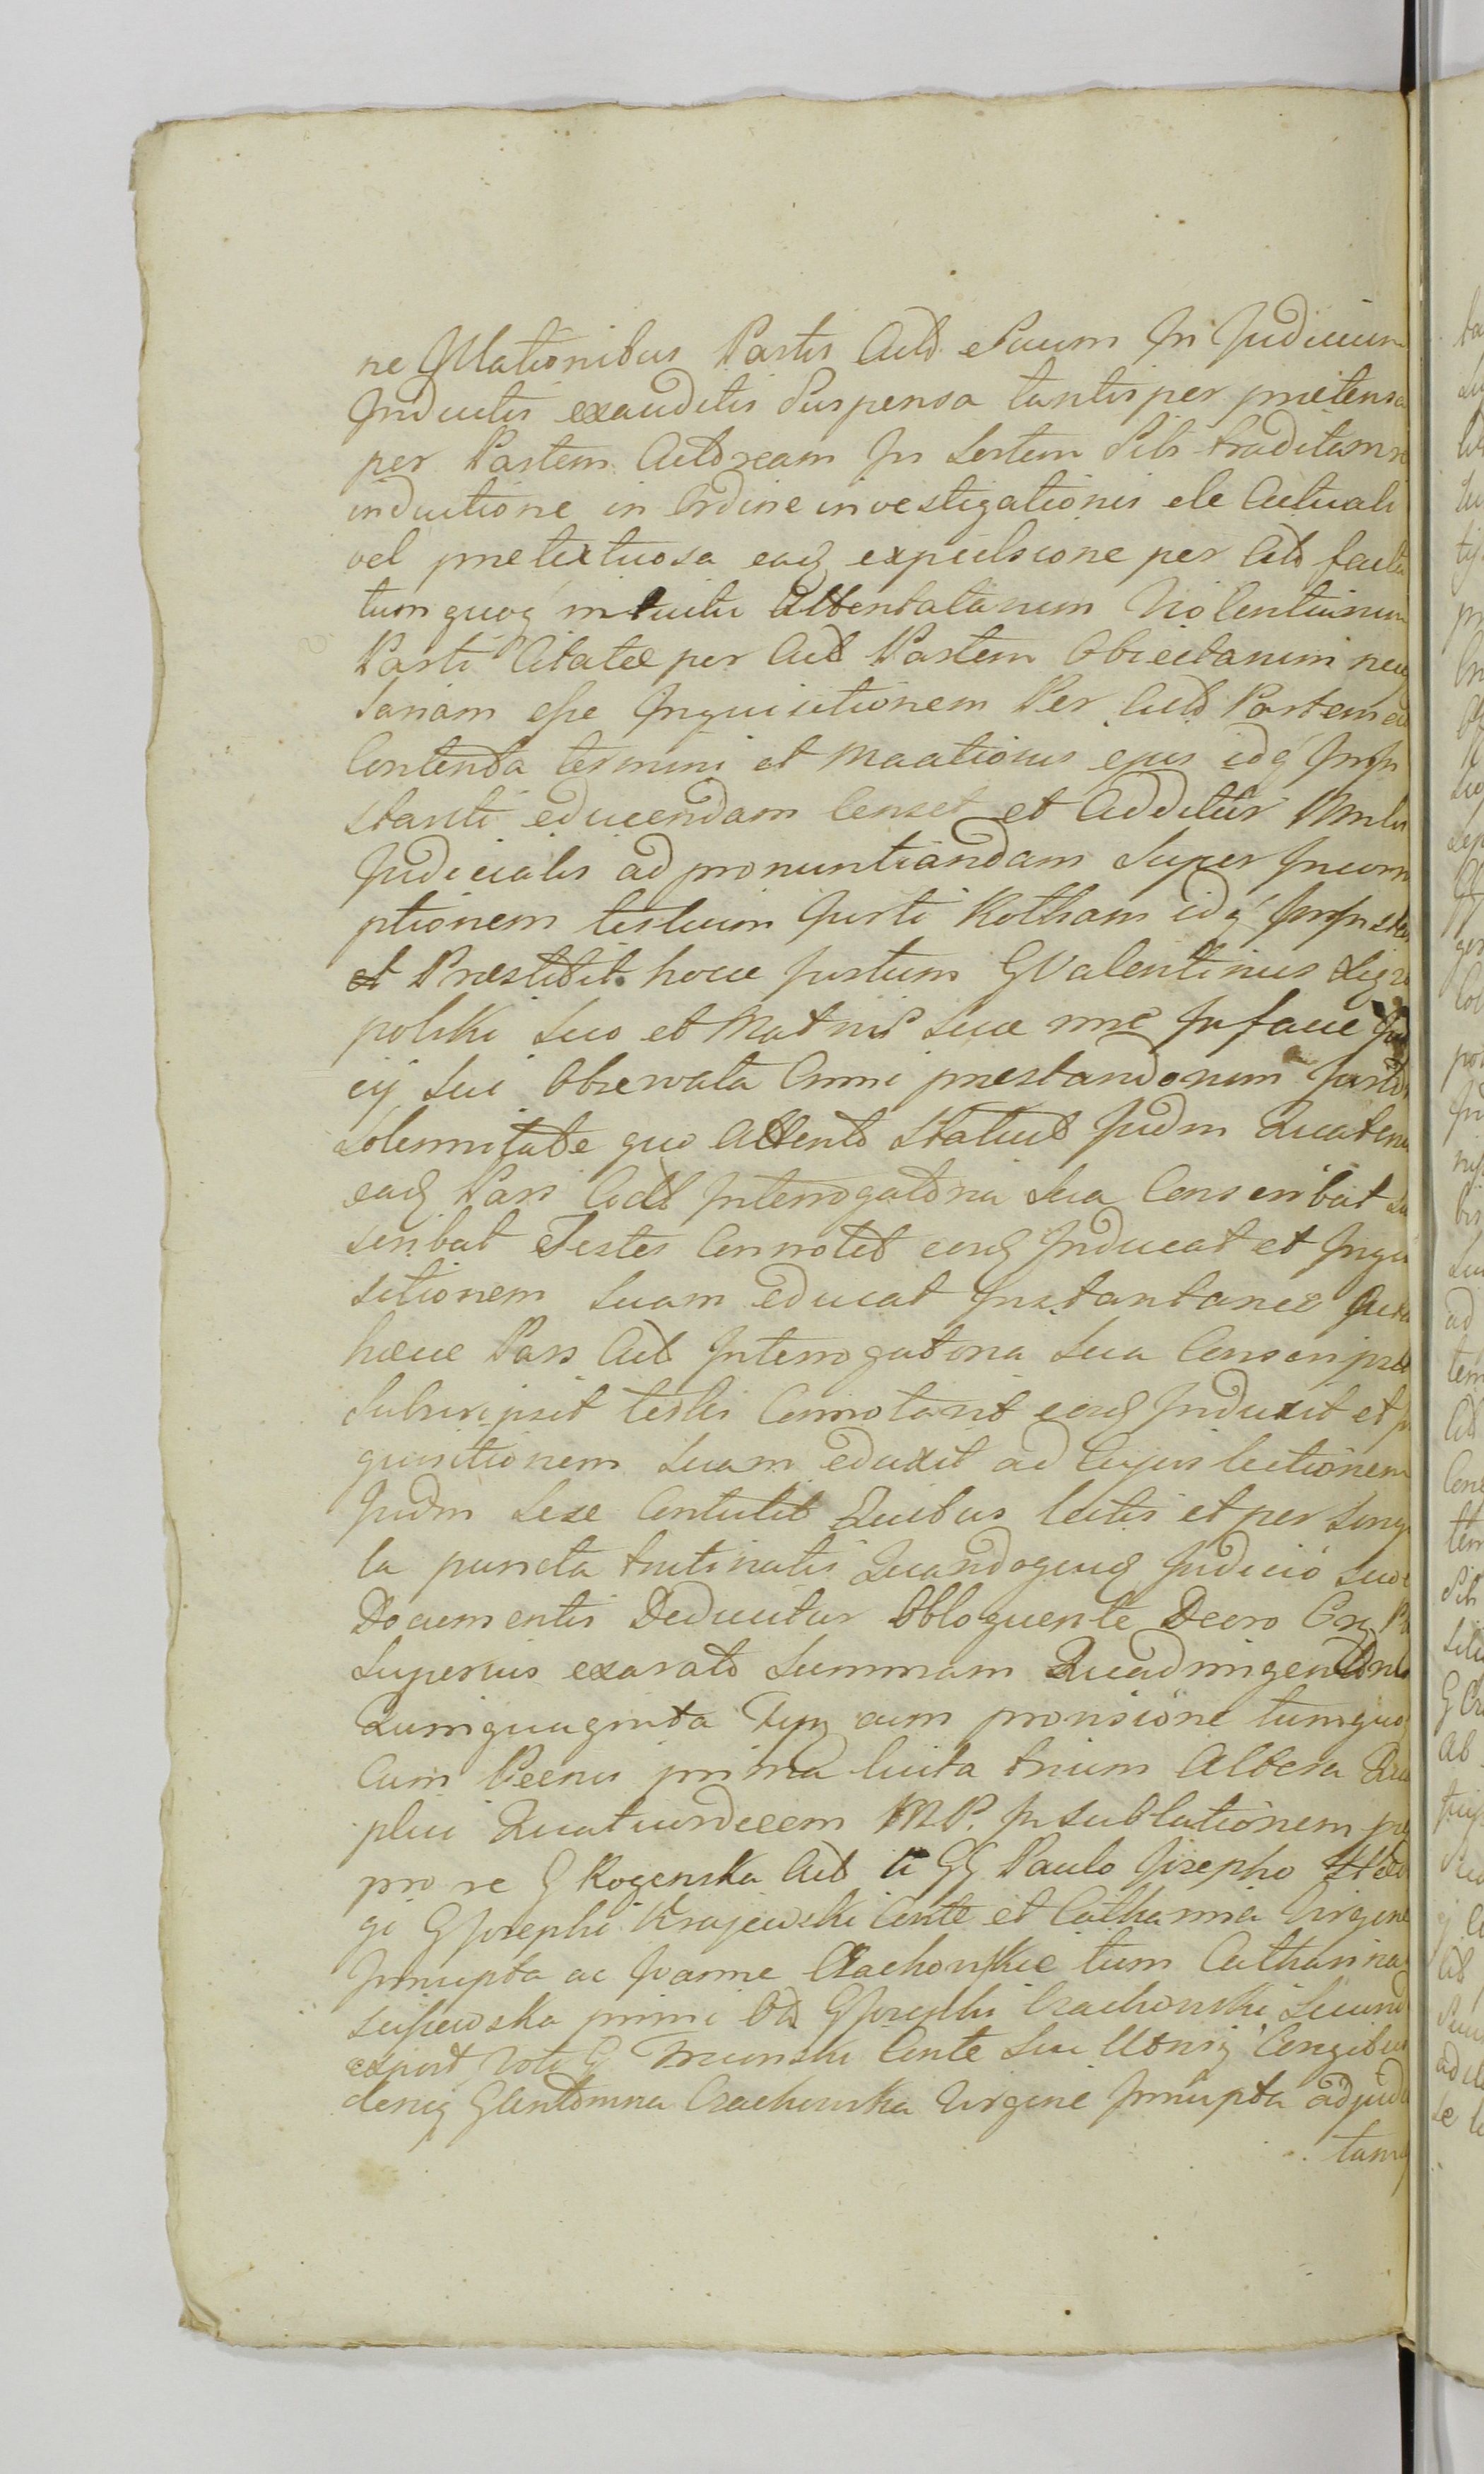 ne Illationibus Partis Actd. Suum In Judicium
Inductis exauditis Suspensa tantisper prætensa
per Partem Actoream In Sortem Sibi traditam
inductione in Ordine investigationis de Actuali
vel prætextuosa eaq expulsione per Actd facta
tum quoq intuitu Attentatarum Violentiarum
Parti Citatæ per Actd Partem Obiectarum neces
sariam esse Inquisitionem Per Actd Partem ad
Contenta termini et Maationis ejus idq In In
stanti educendam Censet et Additur Mnlis
Judicialis ad pronuntiandam Super Incorru
ptionem testium Jurti Rotham idq In In stan
et Præstitit hocce Jurtum G Valentinus
polski Suo et Matris Suæ nme In facie Jud
cij Sui Observata Omni præstandorum Jurtor
Solemnitate quo Attento Statuit Judm Quatenus
eadq Pars Actd Interrogatoria Sua Conscribat su
scribat Testes Connotet eosq Inducat et Inqui
sitionem Suam educat Instantanee
hæcce Pars Actd Interrogatoria Sua Conscripsit
Subscripsit testes Connotavit eosq Induxit et In
quisitionem Suam eduxit ad Cujus lectionem
Judm Sese Contulit Quibus lectis et per Singu
la puncta trutinatis Quandoquidq Judicio
Documentis Deducitur Obloquente Decro
Superius exarato Summam Quadringentorum
Quinquaginta cum provisione tumquoq
Cum Poenis prima luita trium Altera
plici Quatuordecem M P. In sublationem
pro re G Rogenska Actd a GG Paulo Josepho
gi G Josephi Krajewski Conte et Catharina Virgine
Innupta ac Joanne Czachowskie tum Catharina
primi G Josephi Czachowski Secund
Voti G Conte Sue Utriq Conjibus
deniq G Antonina Czachowska Virgine Innupta adjudica
tam